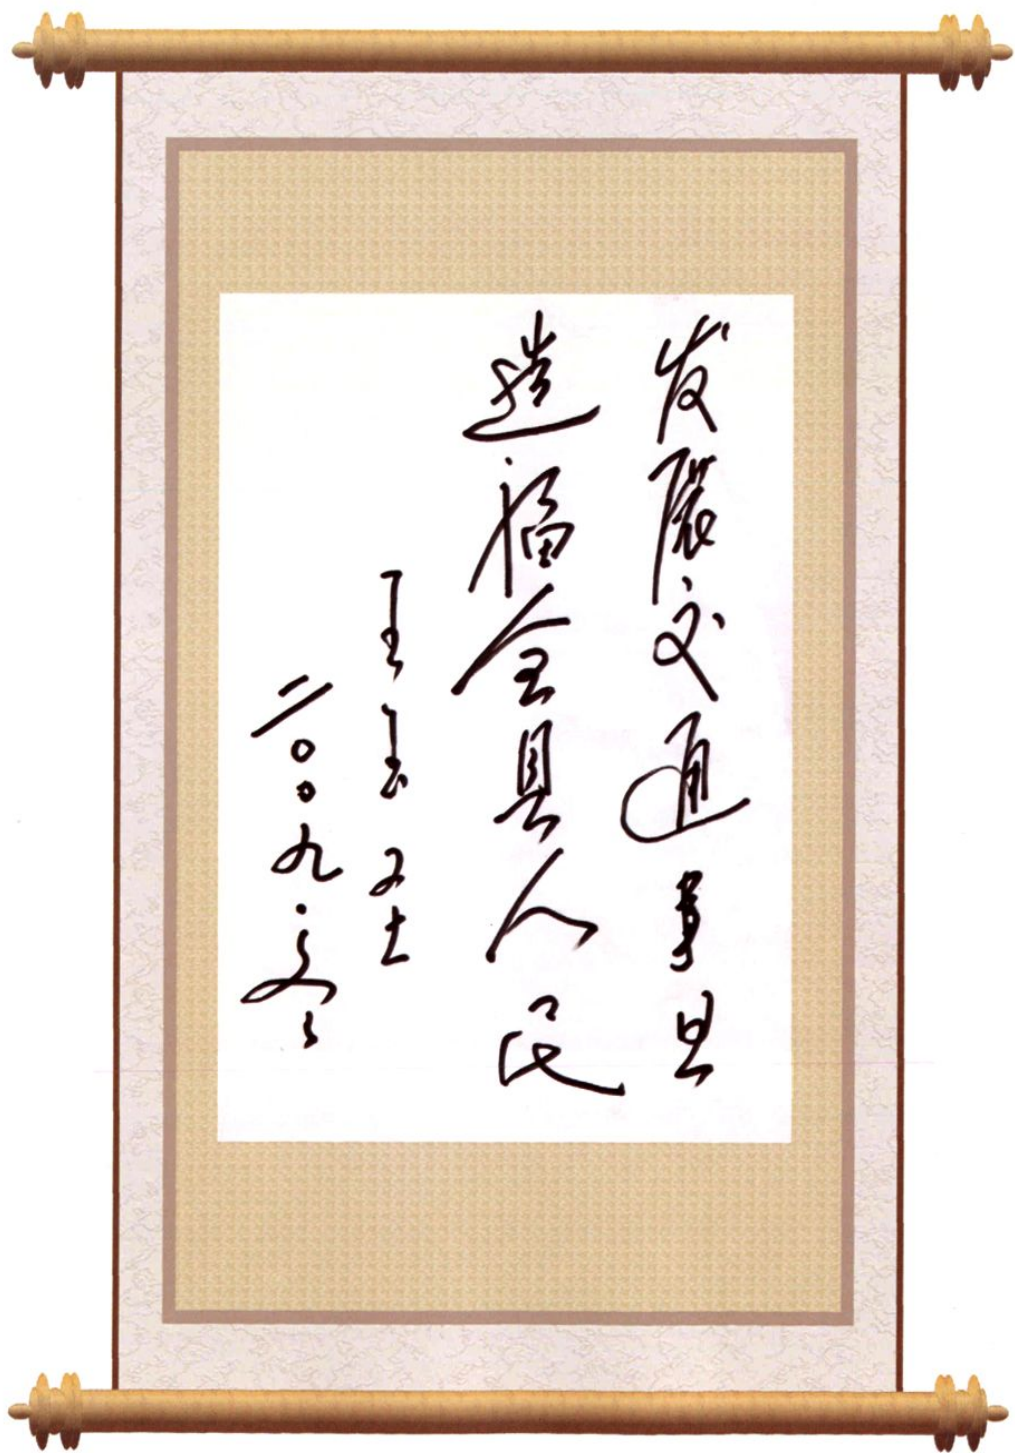 发展交通事业
造福全县人民
王玉圣
二〇〇九.冬